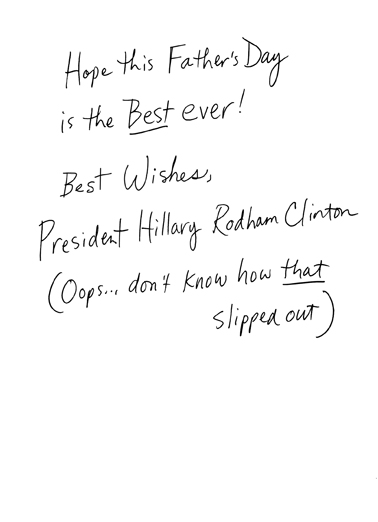 Hope this Father's Day
is the Best ever!
Best Wishes,
President Hillary Rodham Clinton
(Oops... don't know how that
slipped out)